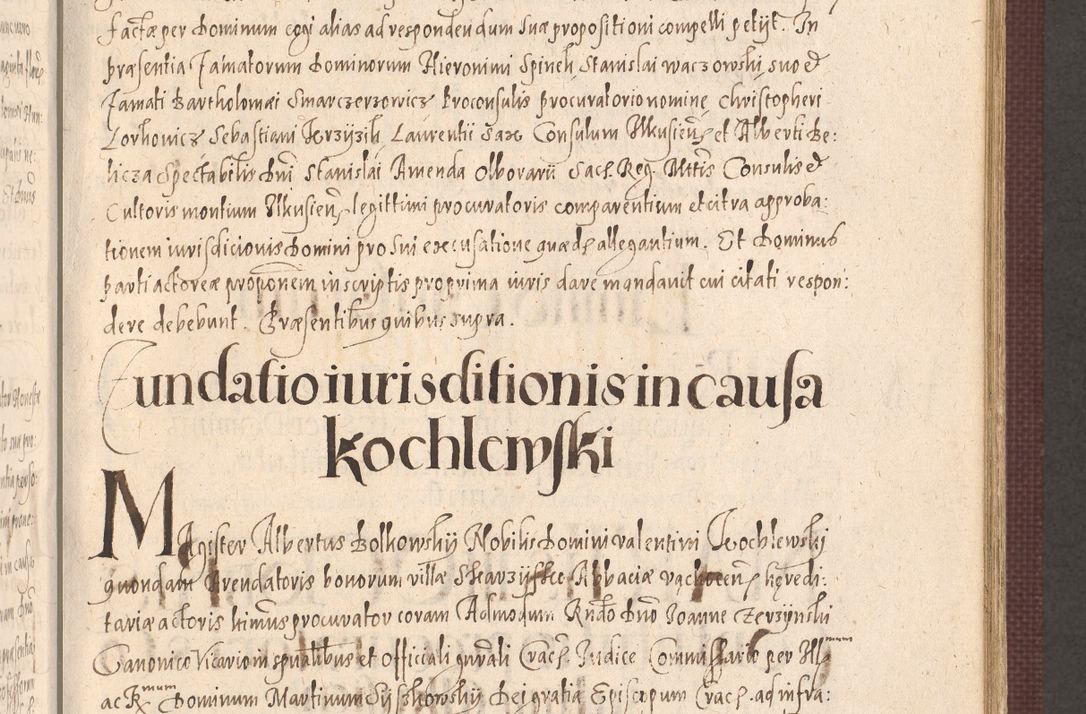 Factæ per Dominum cogi alias ad respondendum suæ propositioni compelli petijt. In
præsentia Famatorum Dominorum Hieronimi Spinek Stanislai waczowski, suo et
Famati Bartholomæi Smarczerzowicz Proconsulis procuratorio nomine, Christopheri
Zorkowicz Sebastiani Laurentii Sax Consulum Ilkusien. et Alberti Be:
licza Spectabilis Dni Stanislai Amenda Olborarii Sac. Reg. Mttis Consulis et
Cultoris montium Ilkusien. legittimi procuratoris comparentium et citra approba:
tionem iurisdicionis Domini pro sui excusatione quædam allegantium. Et Dominus
parti actoreæ proponem in scriptis pro prima iuris dare mandavit cui citati respon:
dere debebunt. Præsentibus quibus supra.
Fundatio iurisditionis in causa
Kochlewski
Magister Albertus Bolkowskij Nobilis Domini valentini Kochlewski
quondam Arendatoris bonorum villæ Skarzijsko Abbaciæ vąchocen. hæredi:
tariæ actoris ltimus procurator coram Admodum Rndo Dno Joanne Zerzynski
Canonico Vicario in spualibus et Officiali gnrali Crac. Judice Commissario per Illmum
ac Rmum Dominum Martinum Sijszkowskij Dei gratia Episcopum Crac. ad infra: